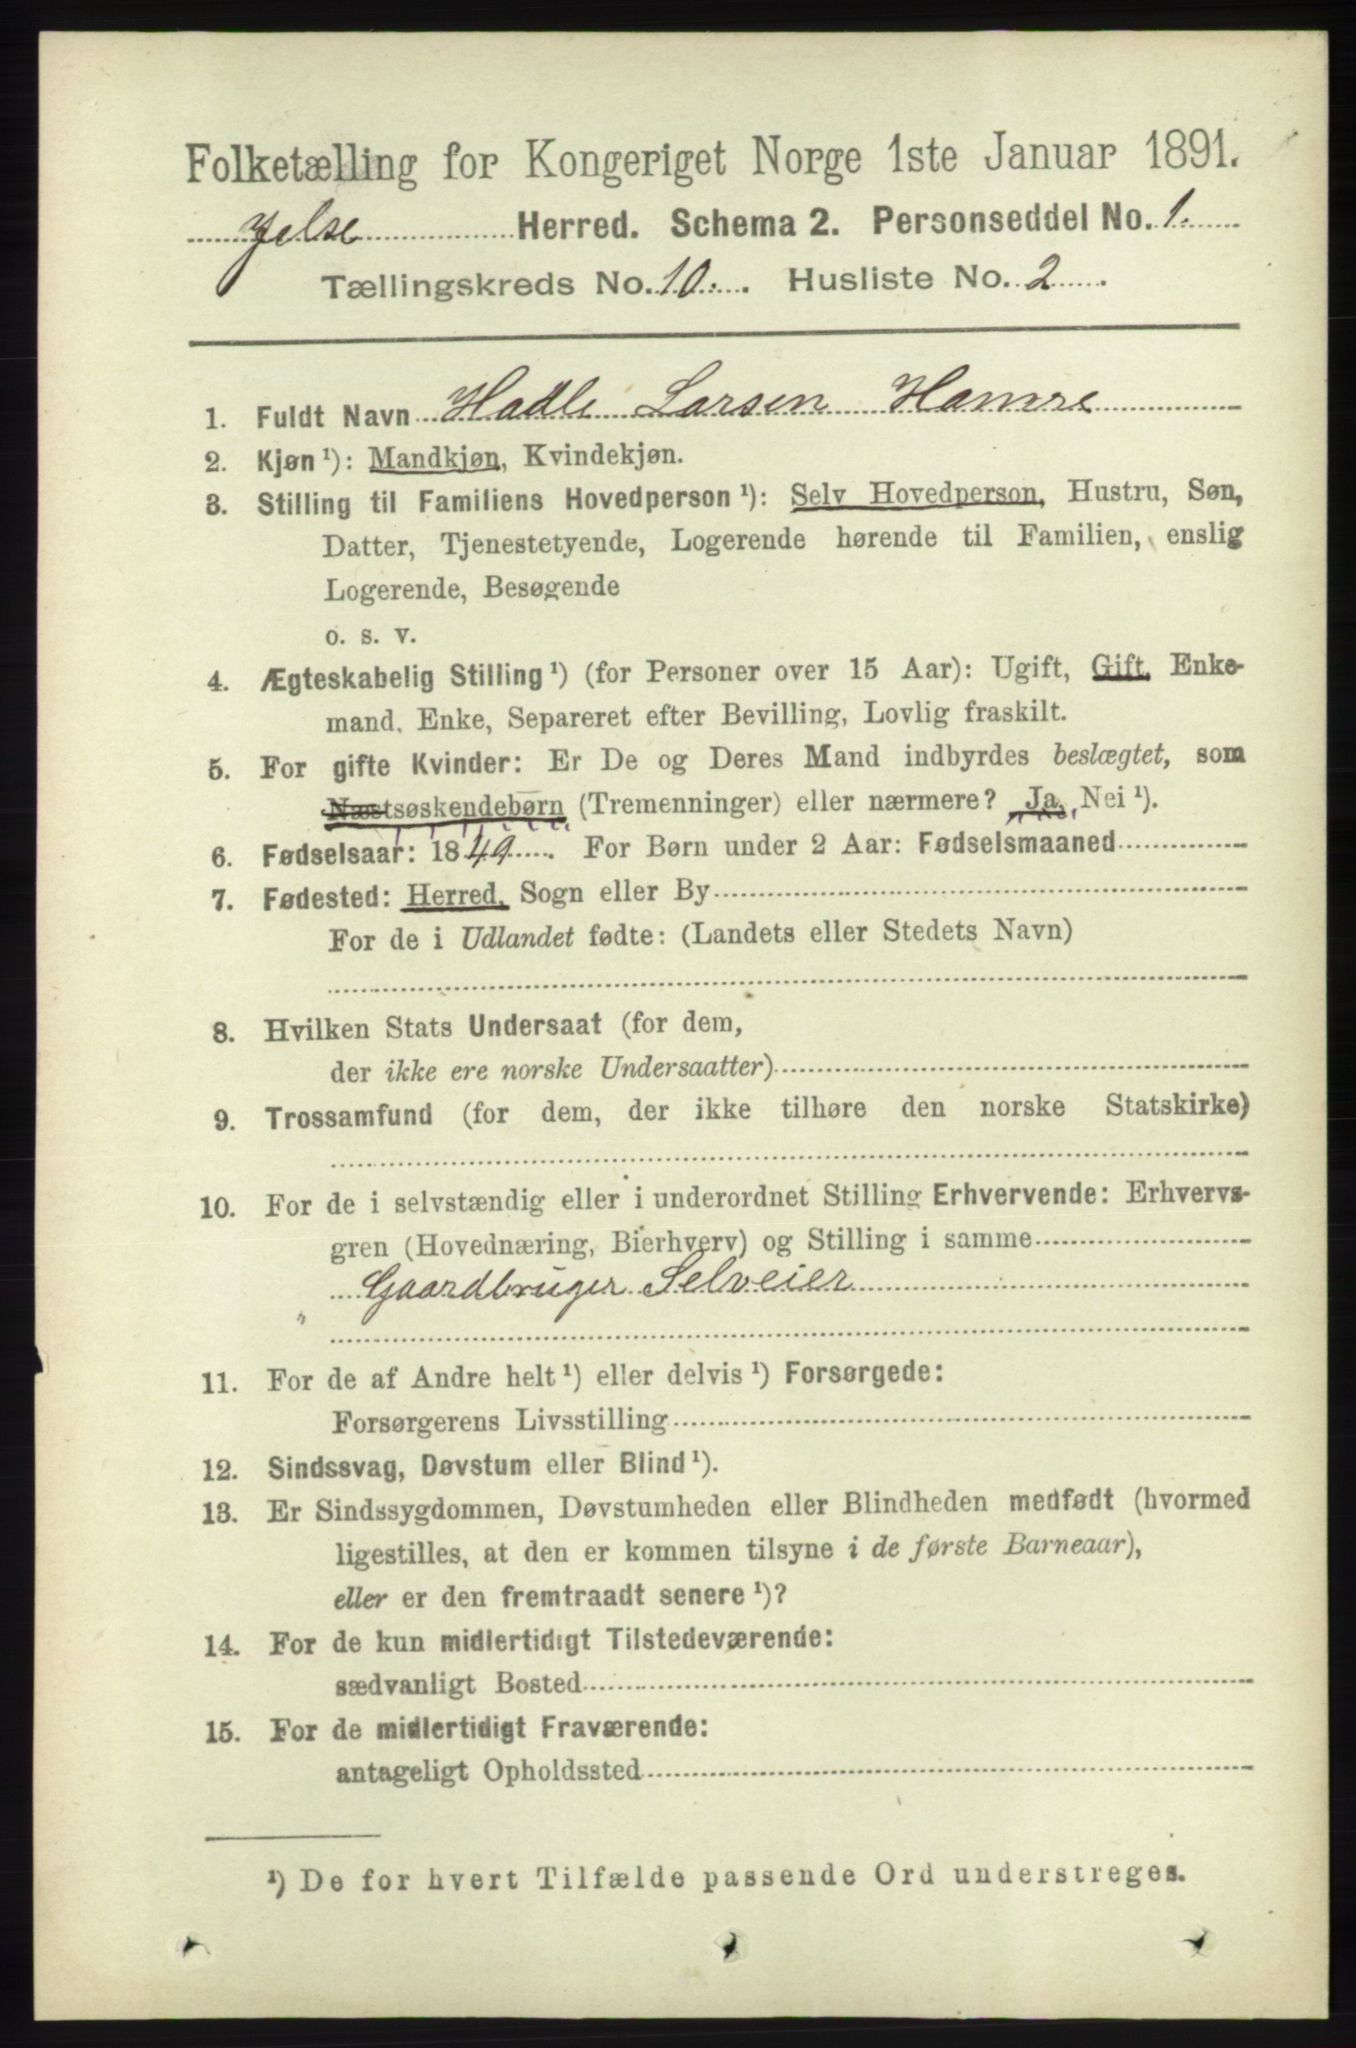 Folketælling for Kongeriget Norge 1ste Januar 1891.
Jelse Herred. Schema 2. Personseddel No. 1.
Tællingskreds No. 10. Husliste No. 2
1. Fuldt Navn Hadle Larsen Hamre
2. Kjøn ¹): Mandkjøn, Kvindekjøn.
3. Stilling til Familiens Hovedperson ¹): Selv Hovedperson, Hustru, Søn,
Datter, Tjenestetyende, Logerende hørende til Familien, enslig
Logerende, Besøgende
o. s. v.
4. Ægteskabelig Stilling ¹) (for Personer over 15 Aar): Ugift, Gift, Enke-
mand, Enke, Separeret efter Bevilling, Lovlig fraskilt.
5. For gifte Kvinder: Er De og Deres Mand indbyrdes beslægtet, som
Næstsøskendebørn (Tremenninger) eller nærmere? Ja, Nei ¹).
6. Fødselsaar: 1849. For Børn under 2 Aar: Fødselsmaaned
7. Fødested: Herred, Sogn eller By
For de i Udlandet fødte: (Landets eller Stedets Navn)
8. Hvilken Stats Undersaat (for dem,
der ikke ere norske Undersaatter)
9. Trossamfund (for dem, der ikke tilhøre den norske Statskirke)
10. For de i selvstændig eller i underordnet Stilling Erhvervende: Erhvervs-
gren (Hovednæring, Bierhverv) og Stilling i samme
Gaardbruger Selveier
11. For de af Andre helt ¹) eller delvis ¹) Forsørgede:
Forsørgerens Livsstilling
12. Sindssvag, Døvstum eller Blind ¹).
13. Er Sindssygdommen, Døvstumheden eller Blindheden medfødt (hvormed
ligestilles, at den er kommen tilsyne i de første Barneaar),
eller er den fremtraadt senere ¹)?
14. For de kun midlertidigt Tilstedeværende:
sædvanligt Bosted
15. For de midlertidigt Fraværende:
antageligt Opholdssted
¹) De for hvert Tilfælde passende Ord understreges.